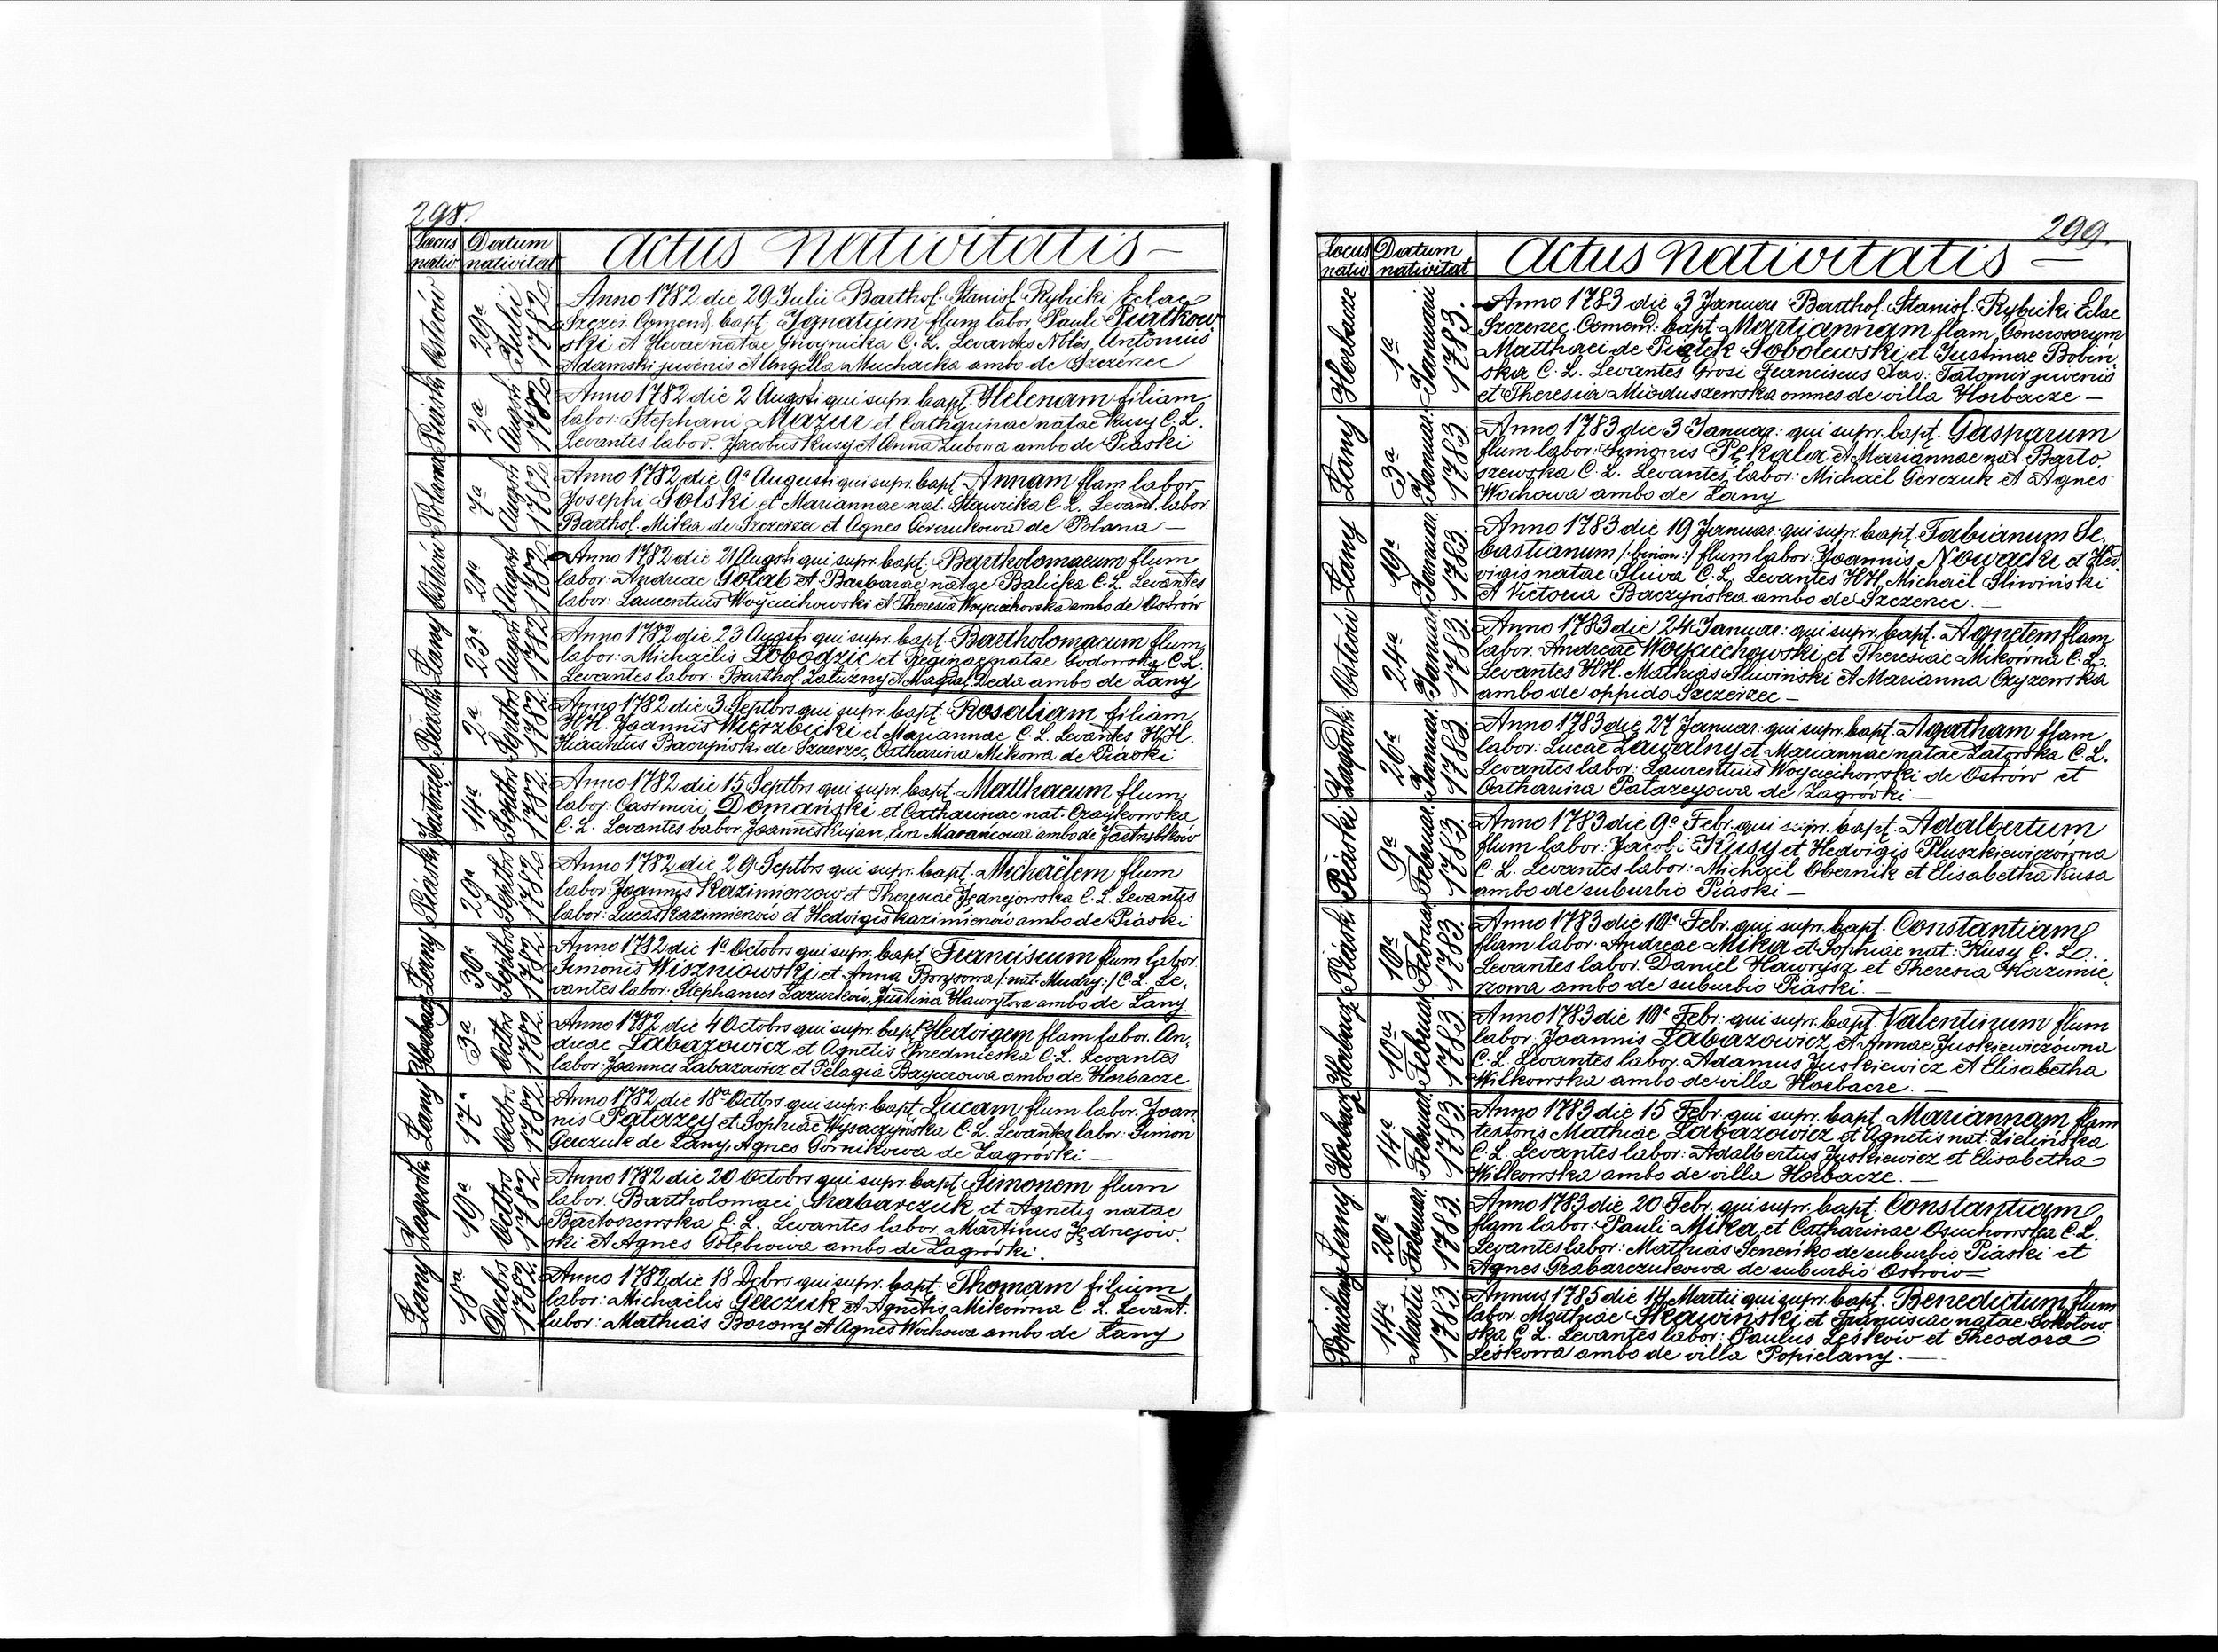 298.
Locus nativ
Datum nativitat
Actus Nativitatis —
Ostrów
29ª Julii 1782.
Anno 1782 die 29 Julii Barthol. Stanisl. Rybicki Eclae
Szczer. Comend. bapt. Ignatium flum labor Pauli Piatkow
ski et Hevae natae Groynicka C. L. Levantes Nbles Antonius
Adamski juvenis et Angella Muchacka ambo de Szczerzec
Piaski
2ª Augsti 1782
Anno 1782 die 2 Augsti qui supr. bapt. Helenam filiam
labor. Stephani Mazur et Catharinae natae Kusy C. L.
Levantes labor. Jacobus Kusy et Anna Lubowa ambo de Piaski
Polana
7ª Augsti 1782
Anno 1782 die 9ª Augusti qui supr. bapt. Annam flam labor
Josephi Solski et Mariannae nat. Stawicka C. L. Levant. labor.
Barthol. Mika de Szczerzec et Agnes Gerczukowa de Polana —
Ostrów
21ª Augsti 1782
Anno 1782 die 21 Augsti qui supr. bapt. Bartholomaeum flum
labor: Andreae Gołąb et Barbarae natae Balicka C. L. Levantes
labor: Laurentius Woyciechowski et Theresia Woyciechowska ambo de Ostrów
Łany
23ª Augsti 1782
Anno 1782 die 23 Augsti qui supr. bapt. Bartholomaeum flum
labor: Michaelis Łobodzic et Reginae natae Godowska C. L.
Levantes labor: Barthol. Załuzny et Magdal. Deda ambo de Łany
Piaski
2ª Septbrs 1782.
Anno 1782 die 3 Septbrs qui supr. bapt. Rosaliam filiam
HH. Joannis Wierzbicki et Mariannae C. L. Levantes HH.
Hiacintus Baczyński de Szczerzec, Catharina Mikowa de Piaski
14ª Septbrs 1782.
Anno 1782 die 15 Septbrs qui supr. bapt. Matthaeum flum
labor: Casimiri Domański et Catharinae nat. Czaykowska
C. L. Levantes labor. Joannes Kujan, Eva Marańcowa ambo de Jastrzębków
Piaski
29ª Septbrs 1782.
Anno 1782 die 29 Septbrs qui supr. bapt. Michaëlem flum
labor Joannis Kazimierzow et Theresiae Jednejowska C. L. Levantes
labor: Lucas Kazimierzów et Hedvigis Kazimierzów ambo de Piaski
Łany
30ª Septbrs 1782.
Anno 1782 die 1ª Octobrs qui supr. bapt. Franciscum flum labor
Simonis Wiszniowski et Anna Borysowa /: nat. Mudry :/ C. L. Le,
vantes labor. Stephanus Lazurków, Justina Hawryłowa ambo de Łany
Horbacz
3ª Octbrs 1782.
Anno 1782 die 4 Octobrs qui supr. bapt. Hedvigem flam labor. An,
dreae Łabazowicz et Agnetis Predmieska C. L. Levantes
labor Joannes Łabazowicz et Pelagia Baycerowa ambo de Horbacze
Łany
17ª Octbr. 1782.
Anno 1782 die 18ª Octbrs qui supr. bapt. Lucam flum labor. Joan
nis Patazey et Sophiae Wysaczyńska C. L. Levantes labor: Simon
Gerczuk de Łany, Agnes Górnikowa de Zagródki —
Zagrodki
19ª Octbrs 1782.
Anno 1782 die 20 Octobrs qui supr. bapt. Simonem flum
labor. Bartholomaei Grabarczuk et Agnetis natae
Bartoszewska C. L. Levantes labor. Martinus Jednejow.
ski et Agnes Gołębiowa ambo de Zagródki.
Łany
18ª Decbrs 1782.
Anno 1782 die 18 Dcbrs qui supr. bapt. Thomam filium
labor: Michaëlis Gerczuk et Agnetis Mikowna C. L. Levant.
labor: Mathias Borony et Agnes Wochowa ambo de Łany
299.
Locus nativ
Datum nativitat
Actus Nativitatis —
Horbacze
1ª Januari 1783.
Anno 1783 die 3 Januar Barthol. Stanisl. Rybicki Eclae
Szczerzec. Comend: bapt. Mariannam flam Generosorum
Matthaei de Piątek Sobolewski et Justinae Bobiń
ska C. L. Levantes Grosi Franciscus Xav: Tatomir juvenis
et Theresia Mioduszewska omnes de villa Horbacze —
Łany
3ª Januar. 1783.
Anno 1783 die 3 Januar: qui supr. bapt. Gasparum
flum labor: Simonis Pękala et Mariannae nat. Barto.
szewska C. L. Levantes labor: Michaël Gerczuk et Agnes
Wochowa ambo de Łany
Łany
19ª Januar. 1783.
Anno 1783 die 19 Januar: qui supr. bapt. Fabianum Se.
bastianum /: binom :/ flum labor: Joannis Nowacki et Hed.
vigis natae Sliwa C. L. Levantes HH. Michaël Sliwiński
et Victoria Baczyńska ambo de Szczerzec. —
Ostrów
24ª Januar. 1783.
Anno 1783 die 24 Januar: qui supr. bapt. Agnetem flam
labor. Andreae Woyciechowski et Theresiae Mikowna C. L.
Levantes HH. Mathias Sliwinski et Marianna Czyzewska
ambo de oppido Szczerzec —
Zagrodki
26ª Januar. 1783.
Anno 1783 die 27 Januar: qui supr. bapt. Agatham flam
labor: Lucae Zawalny et Mariannae natae Zatorska C. L.
Levantes labor: Laurentius Woyciechowski de Ostrów et
Catharina Patazeyowa de Zagródki —
Piaski
9ª Februar. 1783.
Anno 1783 die 9ª Febr. qui supr. bapt. Adalbertum
flum labor: Jacobi Kusy et Hedvigis Pluszkiewiczówna
C. L. Levantes labor: Michaël Obernik et Elisabetha Kusa
ambo de suburbio Piaski —
Piaski
10ª Februar. 1783.
Anno 1783 die 10ª Febr. qui supr. bapt. Constantiam
flam labor: Andreae Mika et Sophiae nat: Kusy C. L.
Levantes labor. Daniel Hawrysz et Theresia Kazimie.
rzowa ambo de suburbio Piaski. —
Horbacz
10ª Februar 1783.
Anno 1783 die 10ª Febr: qui supr. bapt. Valentinum flum
labor: Joannis Łabazowicz et Annae Juskiewiczówna
C. L. Levantes labor. Adamus Juskiewicz et Elisabetha
Wilkowska ambo de villa Horbacze. —
Horbacz
14ª Februar 1783.
Anno 1783 die 15 Febr. qui supr. bapt. Mariannam flam
textoris Mathiae Łabazowicz et Agnetis nat. Zielińska
C. L. Levantes labor: Adalbertus Juskiewicz et Elisabetha
Wilkowska ambo de villa Horbacze. —
Łany
20ª Februar. 1783.
Anno 1783 die 20 Febr. qui supr. bapt. Constantiam
flam labor: Pauli Mika et Catharinae Osuchowska C. L.
Levantes labor: Mathias Seneńko de suburbio Piaski et
Agnes Grabarczukowa de suburbio Ostrów —
14ª Martii 1783
Annus 1785 die 14 Martii qui supr. bapt. Benedictum flum
labor. Mathiae Skawiński et Franciscae natae Sokołow
ska C. L. Levantes labor: Paulus Leśków et Theodora
Leskowa ambo de villa Popielany. —